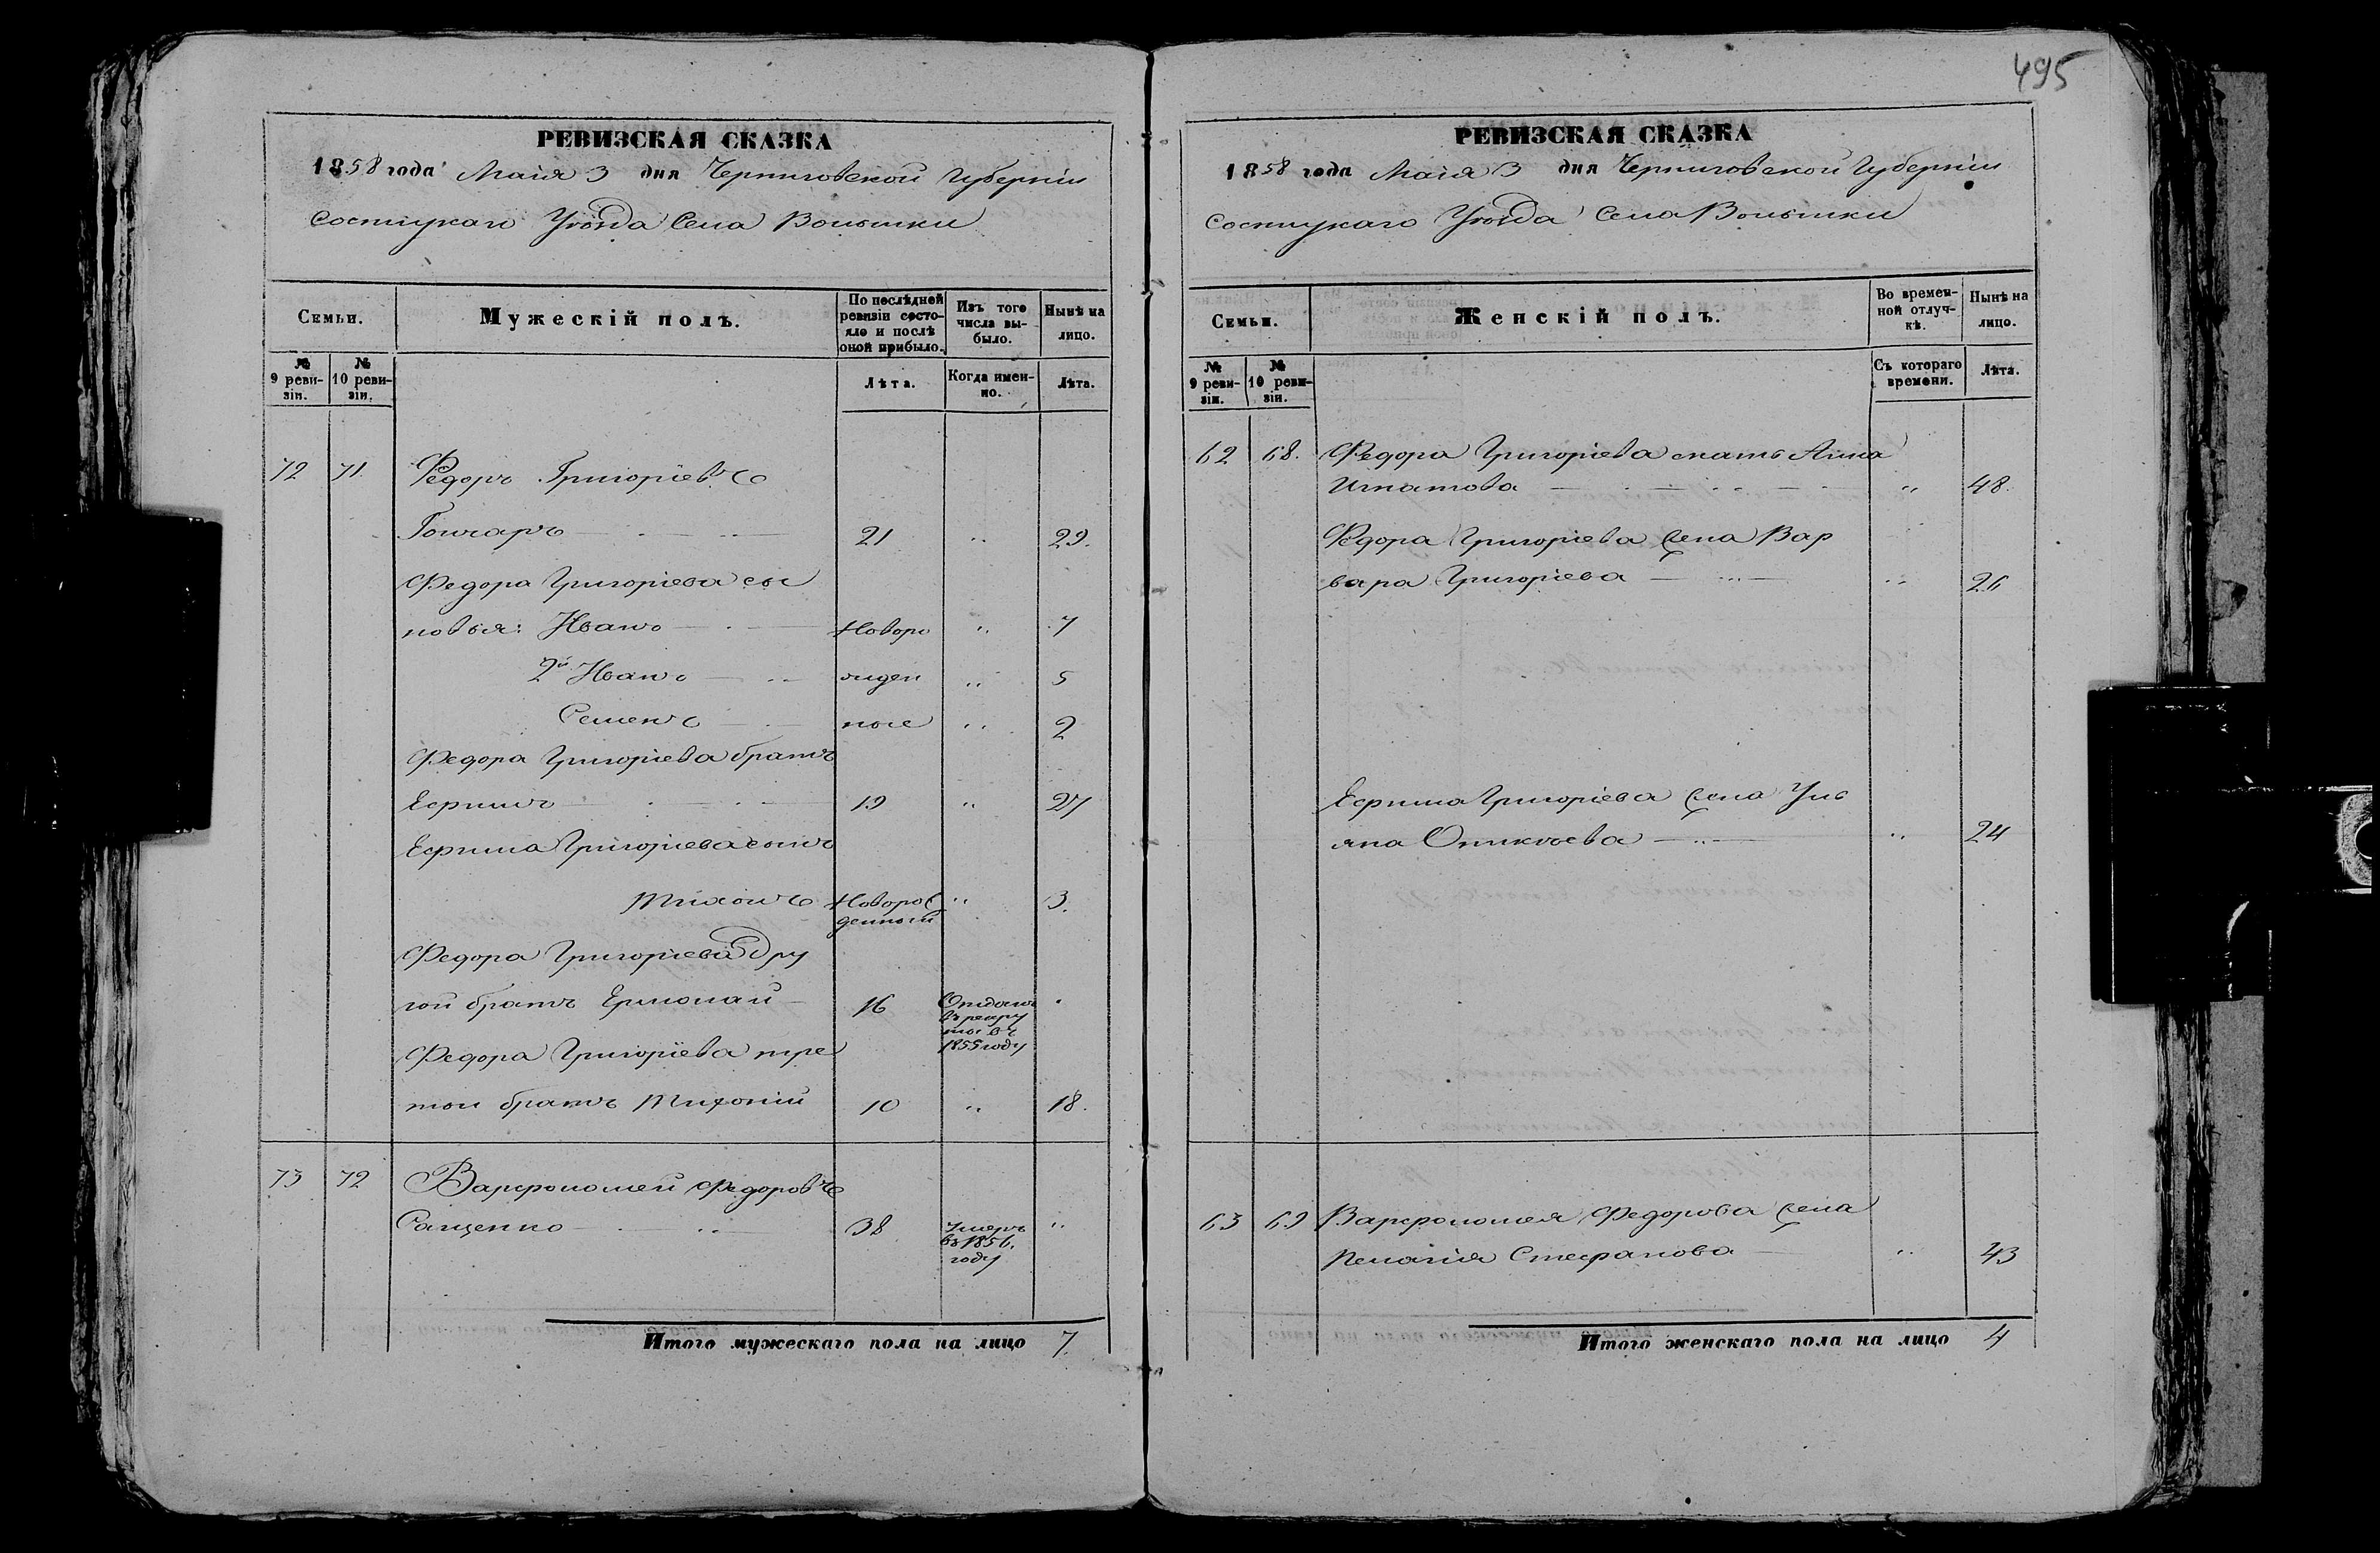 495
РЕВИЗСКАЯ СКАЗКА
1858 года Маія 3 дня Черниговской Губерніи
Сосницкаго Уѣзда Села Волынки
Семьи.
Мужескій полъ.
По послѣдней ревизіи состояло и послѣ оной прибыло.
Изъ того числа выбыло.
Нынѣ на лицо.
№ 9 ревизіи.
№ 10 ревизіи.
Лѣта.
Когда именно.
Лѣта.
72 71. Федоръ Григоріевъ
Гончаръ 21 " 29.
Федора Григоріева сы
новья: Иванъ Новоро " 7
2й Иванъ жден " 5
Семенъ ные " 2
Федора Григоріева братъ
Ефимъ 19 " 27
Ефима Григоріева сынъ
Тихонъ Новорож " 3.
денный
Федора Григоріева дру
гой братъ Ермолай 16 Отданъ
въ рекру
ты въ
1855 году
Федора Григоріева тре
тои братъ Тифоній 10 " 18.
73 72 Варфоломей Федоровъ
Сащенко 38 Умеръ "
въ 1856.
году
Итого мужескаго пола на лицо 7.
РЕВИЗСКАЯ СКАЗКА
1858 года Маія 3 дня Черниговской Губерніи
Сосницкаго Уѣзда Села Волынки
Семьи.
Женскій полъ.
Во временной отлучкѣ.
Нынѣ на лицо.
№ 9 ревизіи.
№ 10 ревизіи.
Съ котораго времени.
Лѣта.
62 68. Федора Григоріева мать Анна
Игнатова " 48.
Федора Григоріева жена Вар
вара Григоріева " 26
Ефима Григоріева жена Уль
яна " 24
63 69 Варфоломея Федорова жена
Пелагія Стефанова " 43
Итого женскаго пола на лицо 4